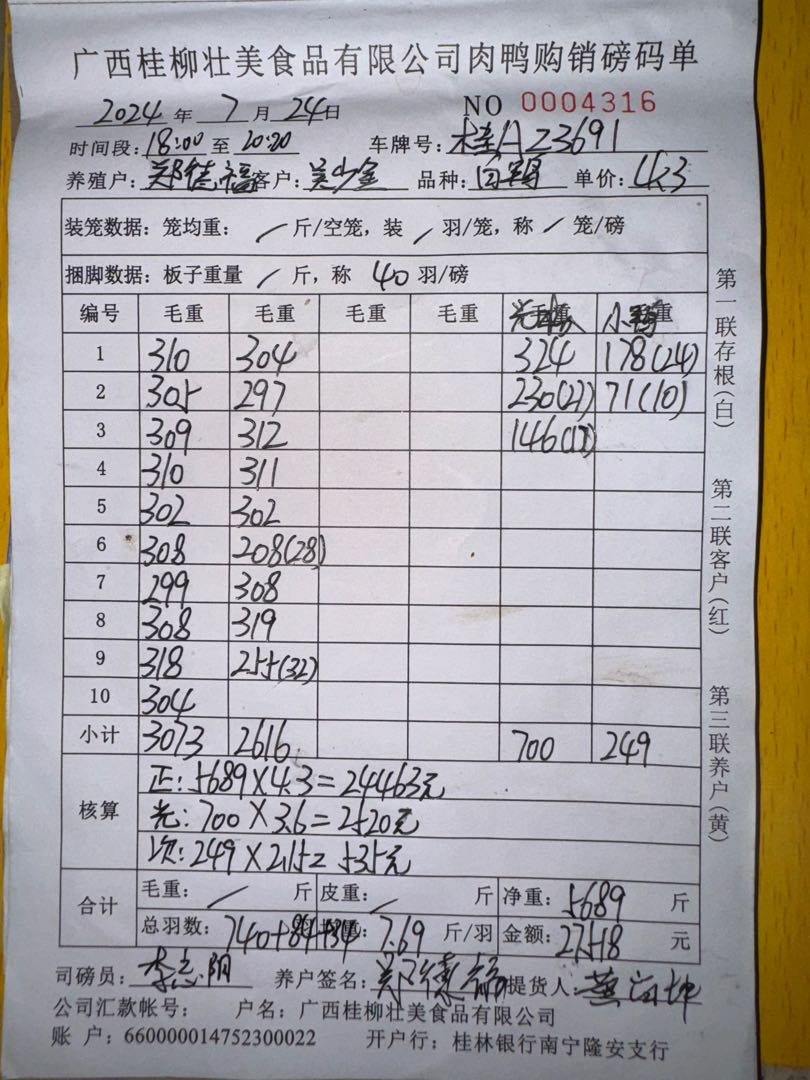 广西桂柳壮美食品有限公司肉鸭购销磅码单
2024 年 7 月 24 日 NO 0004316
时间段: 18:00 至 20:20 车牌号: 桂AZ3691
养殖户: 郑德福 客户: 吴少金 品种: 白鸭 单价: 4.3
装笼数据: 笼均重: / 斤/空笼, 装 / 羽/笼, 称 / 笼/磅
捆脚数据: 板子重量 / 斤, 称 40 羽/磅
编号 毛重 毛重 毛重 毛重 毛重 小鸭 重
1 310 304 324 178(24)
2 305 297 230(27) 71(10)
3 309 312 146(17)
4 310 311
5 302 302
6 308 208(28)
7 299 308
8 308 319
9 318 255(32)
10 304
小计 3073 2616 700 249
核算
正: 5689×4.3=24463元
光: 700×3.6=2520元
次: 249×2.15=535元
合计
毛重: / 斤 皮重: / 斤 净重: 5689 斤
总羽数: 740+84+34 7.69 斤/羽 金额: 27518 元
司磅员: 李志阴 养户签名: 郑德福 提货人:
公司汇款帐号: 户名: 广西桂柳壮美食品有限公司
账 户: 660000014752300022 开户行: 桂林银行南宁隆安支行
第一联存根(白)
第二联客户(红)
第三联养户(黄)